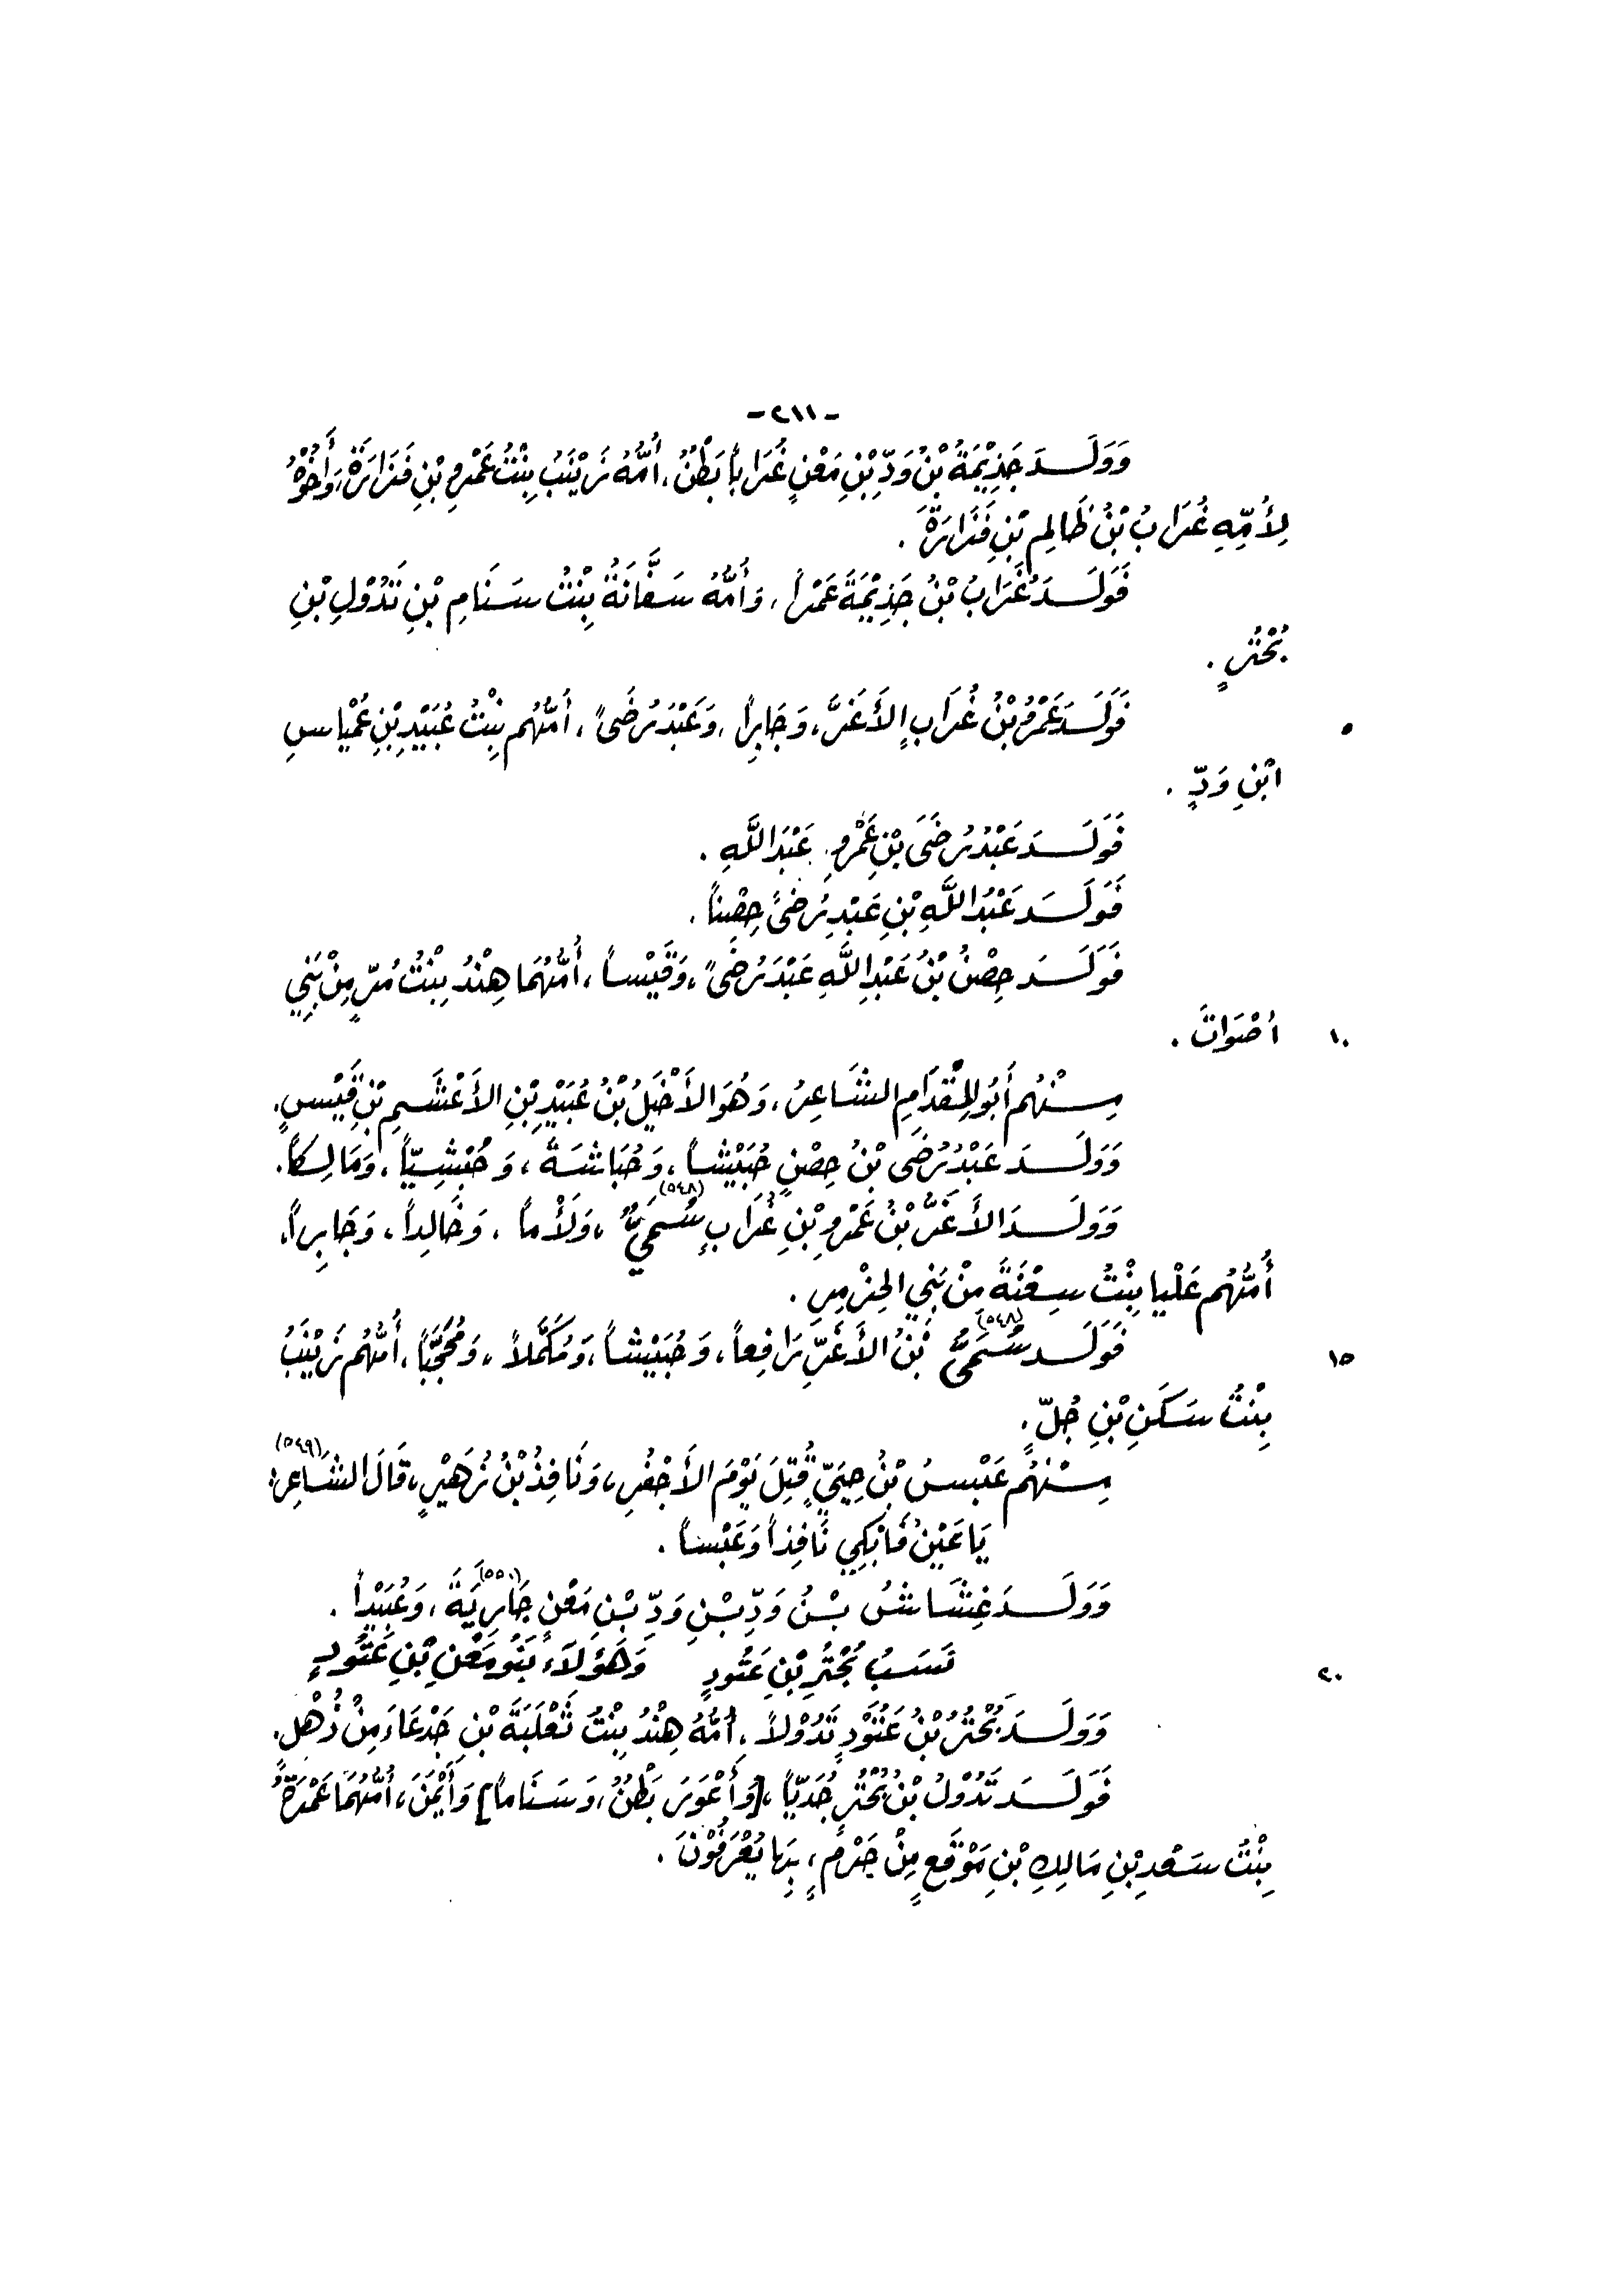 -٢١١-
وَوَلَـــدَ جَذِيْمَةُ بْنُ وَدِّ بْنِ مَعْنٍ غُرَاباً بَطْنٌ، أُمُّهُ زَيْنَبُ بِنْتُ عَمْرِو بْنِ فَزَارَةَ، وَأَخُوْهُ
لِأُمِّهِ غُرَابُ بْنُ ظَالِمِ بْنِ فَزَارَةَ .
فَوَلَـــدَ غُرَابُ بْنُ جَذِيْمَةَ عَمْراً، وَأُمُّهُ سَفَّانَةُ بِنْتُ سَنَامِ بْنِ تَدُوْلِ بْنِ
بُحْتُرٍ .
فَوَلَـــدَ عَمْرُو بْنُ غُرَابٍ الأَغَرَّ، وَجَابِراً، وَعَبْدَ رُضَىً، أُمُّهُم بِنْتُ عُبَيْدِ بْنِ عَمْيَاسِ
٥
ابْنِ وَدٍّ .
فَوَلَـــدَ عَبْدُ رُضَىَ بْنِ عَمْرٍو عَبْدَ اللَّهِ .
فَوَلَـــدَ عَبْدُ اللَّهِ بْنِ عَبْدِ رُضَىً حِصْناً .
فَوَلَـــدَ حِصْنُ بْنُ عَبْدِ اللَّهِ عَبْدَ رُضَىً، وَقَيْساً، أُمُّهُمَا هِنْدُ بِنْتُ مُرٍّ مِنْ بَنِي
أُصْوَاتَ .
١٠
مِـــنْهُم أَبُو المِقْدَامِ الشَّاعِرُ، وَهُوَ الأَخْيَلُ بْنُ عُبَيْدِ بْنِ الأَعْشَمِ بْنِ قَيْسٍ .
وَوَلَـــدَ عَبْدُ رُضَى بْنُ حِصْنٍ حُبَيْشاً، وَحُبَاشَةَ، وَحُبْشِيّاً، وَمَالِكاً .
وَوَلَـــدَ الأَغَرُّ بْنُ عَمْرِو بْنِ غُرَابٍ سُمَيٌّ (٥٤٨)، وَلَأْماً، وَخَالِداً، وَجَابِراً،
أُمُّهُم عَلْيا بِنْتُ سِعْنَةَ مِنْ بَنِي الحِزْمِرِ .
فَوَلَـــدَ سُمَيُّ (٥٤٨) بْنُ الأَغَرِّ رَافِعاً، وَحُبَيْشاً، وَمُكَمَّلاً، وَمُحَجَّباً، أُمُّهُم زَيْنَبُ
١٥
بِنْتُ سَكَنِ بْنِ جُلٍّ .
مِـــنْهُم عَبْسُ بْنُ حِيَيٍّ قُتِلَ يَوْمَ الأَجْفُرِ، وَنَافِذُ بْنُ زُهَيْرٍ، قَالَ الشَّاعِرُ: (٥٤٩)
يَا عَيْنُ فَابْكِي نَافِذاً وَعَبْسَاً .
وَوَلَـــدَ غِشَاشُ بْـنُ وَدِّ بْـنِ وَدِّ بْـنِ مَعْنٍ جَارِيَةَ (٥٥٠)، وَعُبَيْداً .
وَهَؤُلَاءِ بَنُو مَعْنِ بْنِ عَتُودٍ نَسَبُ بُحْتُرِ بْنِ عَتُودٍ
٢٠
وَوَلَـــدَ بُحْتُرُ بْنُ عَتُوْدٍ تَدُوْلاً، أُمُّهُ هِنْدُ بِنْتُ ثَعْلَبَةَ بْنِ جَدْعَاءَ مِنْ ذُهْلٍ .
فَوَلَـــدَ تَدُوْلُ بْنُ بُحْتُرٍ جُدَيّاً، [وَأَعْوَرَ بَطْنٌ، وَسَنَاماً] وَأَيْمَنَ، أُمُّهُمَا عَمْرَةُ
بِنْتُ سَعْدِ بْنِ مَالِكِ بْنِ مَوْقَعٍ مِنْ جَرْمٍ، بِهَا يُعْرَفُوْنَ .